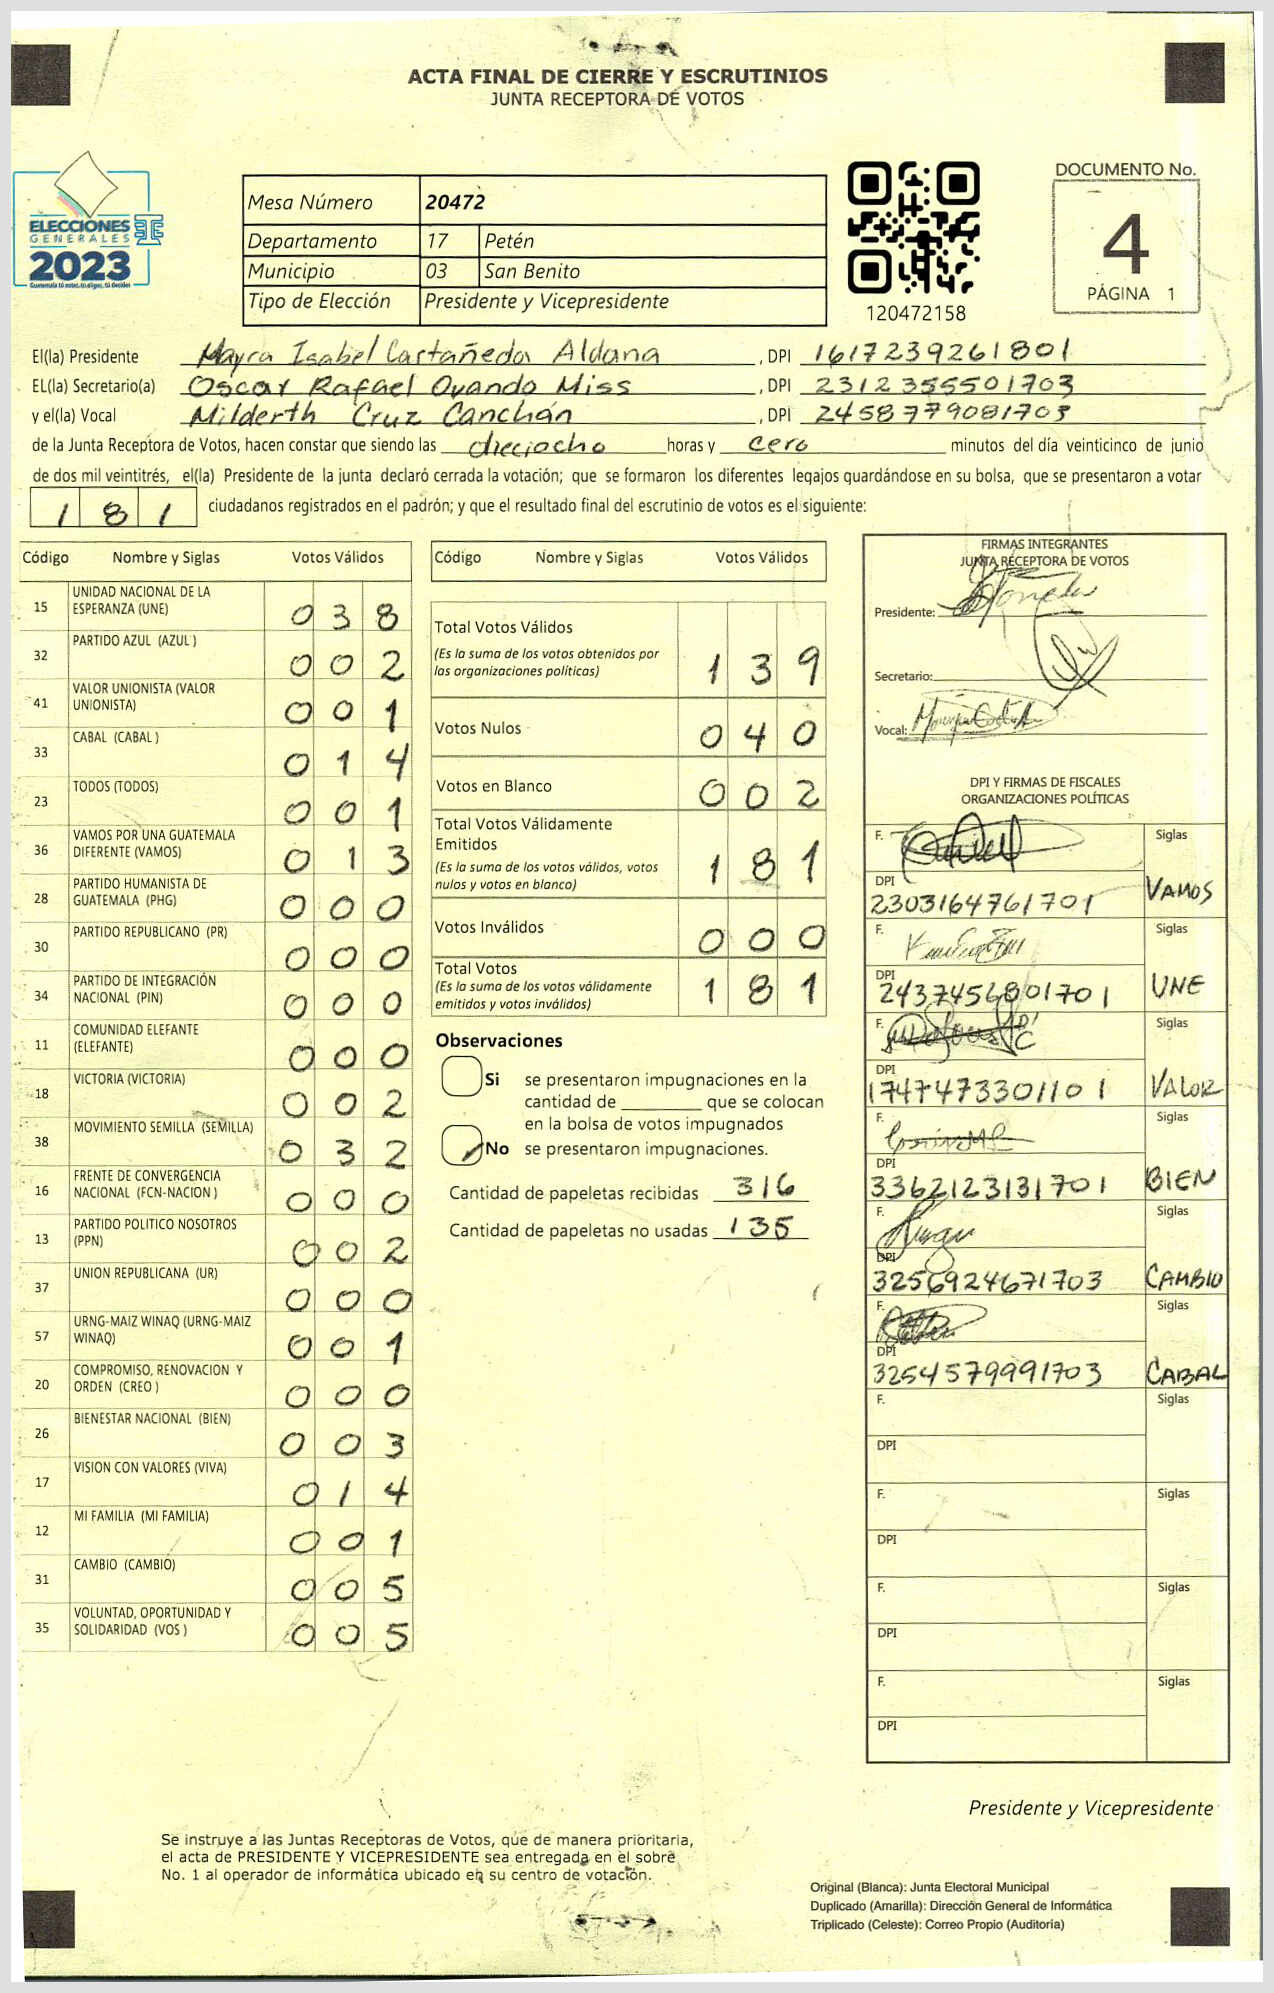 ACTA FINAL DE CIERRE Y ESCRUTINIOS
JUNTA RECEPTORA DE VOTOS
ELECCIONES
GENERALES
2023
Guatemala tú votas, tú eliges, tú decides
Mesa Número 20472
Departamento 17 Petén
Municipio 03 San Benito
Tipo de Elección Presidente y Vicepresidente
120472158
DOCUMENTO No.
4
PÁGINA 1
El(la) Presidente Mayra Isabel Castañeda Aldana, DPI 1617239261801
EL(la) Secretario(a) Oscar Rafael Ovando Miss, DPI 2312355501703
y el(la) Vocal Milderth Cruz Canchán, DPI 2458779081703
de la Junta Receptora de Votos, hacen constar que siendo las dieciocho horas y cero minutos del día veinticinco de junio
de dos mil veintitrés, el(la) Presidente de la junta declaró cerrada la votación; que se formaron los diferentes legajos guardándose en su bolsa, que se presentaron a votar
181 ciudadanos registrados en el padrón; y que el resultado final del escrutinio de votos es el siguiente:
Código Nombre y Siglas Votos Válidos
15 UNIDAD NACIONAL DE LA
ESPERANZA (UNE) 038
32 PARTIDO AZUL (AZUL ) 002
41 VALOR UNIONISTA (VALOR
UNIONISTA) 001
33 CABAL (CABAL ) 014
23 TODOS (TODOS) 001
36 VAMOS POR UNA GUATEMALA
DIFERENTE (VAMOS) 013
28 PARTIDO HUMANISTA DE
GUATEMALA (PHG) 000
30 PARTIDO REPUBLICANO (PR) 000
34 PARTIDO DE INTEGRACIÓN
NACIONAL (PIN) 000
11 COMUNIDAD ELEFANTE
(ELEFANTE) 000
18 VICTORIA (VICTORIA) 002
38 MOVIMIENTO SEMILLA (SEMILLA) 032
16 FRENTE DE CONVERGENCIA
NACIONAL (FCN-NACION ) 000
13 PARTIDO POLITICO NOSOTROS
(PPN) 002
37 UNION REPUBLICANA (UR) 000
57 URNG-MAIZ WINAQ (URNG-MAIZ
WINAQ) 001
20 COMPROMISO, RENOVACION Y
ORDEN (CREO ) 000
26 BIENESTAR NACIONAL (BIEN) 003
17 VISION CON VALORES (VIVA) 014
12 MI FAMILIA (MI FAMILIA) 001
31 CAMBIO (CAMBIO) 005
35 VOLUNTAD, OPORTUNIDAD Y
SOLIDARIDAD (VOS ) 005
Código Nombre y Siglas Votos Válidos
Total Votos Válidos
(Es la suma de los votos obtenidos por
las organizaciones políticas) 139
Votos Nulos 040
Votos en Blanco 002
Total Votos Válidamente
Emitidos
(Es la suma de los votos válidos, votos
nulos y votos en blanco) 181
Votos Inválidos 000
Total Votos
(Es la suma de los votos válidamente
emitidos y votos inválidos) 181
Observaciones
Si se presentaron impugnaciones en la
cantidad de ________ que se colocan
en la bolsa de votos impugnados
No se presentaron impugnaciones.
Cantidad de papeletas recibidas 316
Cantidad de papeletas no usadas 135
FIRMAS INTEGRANTES
JUNTA RECEPTORA DE VOTOS
Presidente:
Secretario:
Vocal:
DPI Y FIRMAS DE FISCALES
ORGANIZACIONES POLÍTICAS
F. Siglas
DPI
2303164761701 VAMOS
F. Siglas
DPI
2437456801701 UNE
F. Siglas
DPI
1747473301101 VALOR
F. Siglas
DPI
3362123131701 BIEN
F. Siglas
DPI
3256924671703 CAMBIO
F. Siglas
DPI
3254579991703 CABAL
F. Siglas
DPI
F. Siglas
DPI
F. Siglas
DPI
F. Siglas
DPI
Presidente y Vicepresidente
Se instruye a las Juntas Receptoras de Votos, que de manera prioritaria,
el acta de PRESIDENTE Y VICEPRESIDENTE sea entregada en el sobre
No. 1 al operador de informática ubicado en su centro de votación.
Original (Blanca): Junta Electoral Municipal
Duplicado (Amarilla): Dirección General de Informática
Triplicado (Celeste): Correo Propio (Auditoría)